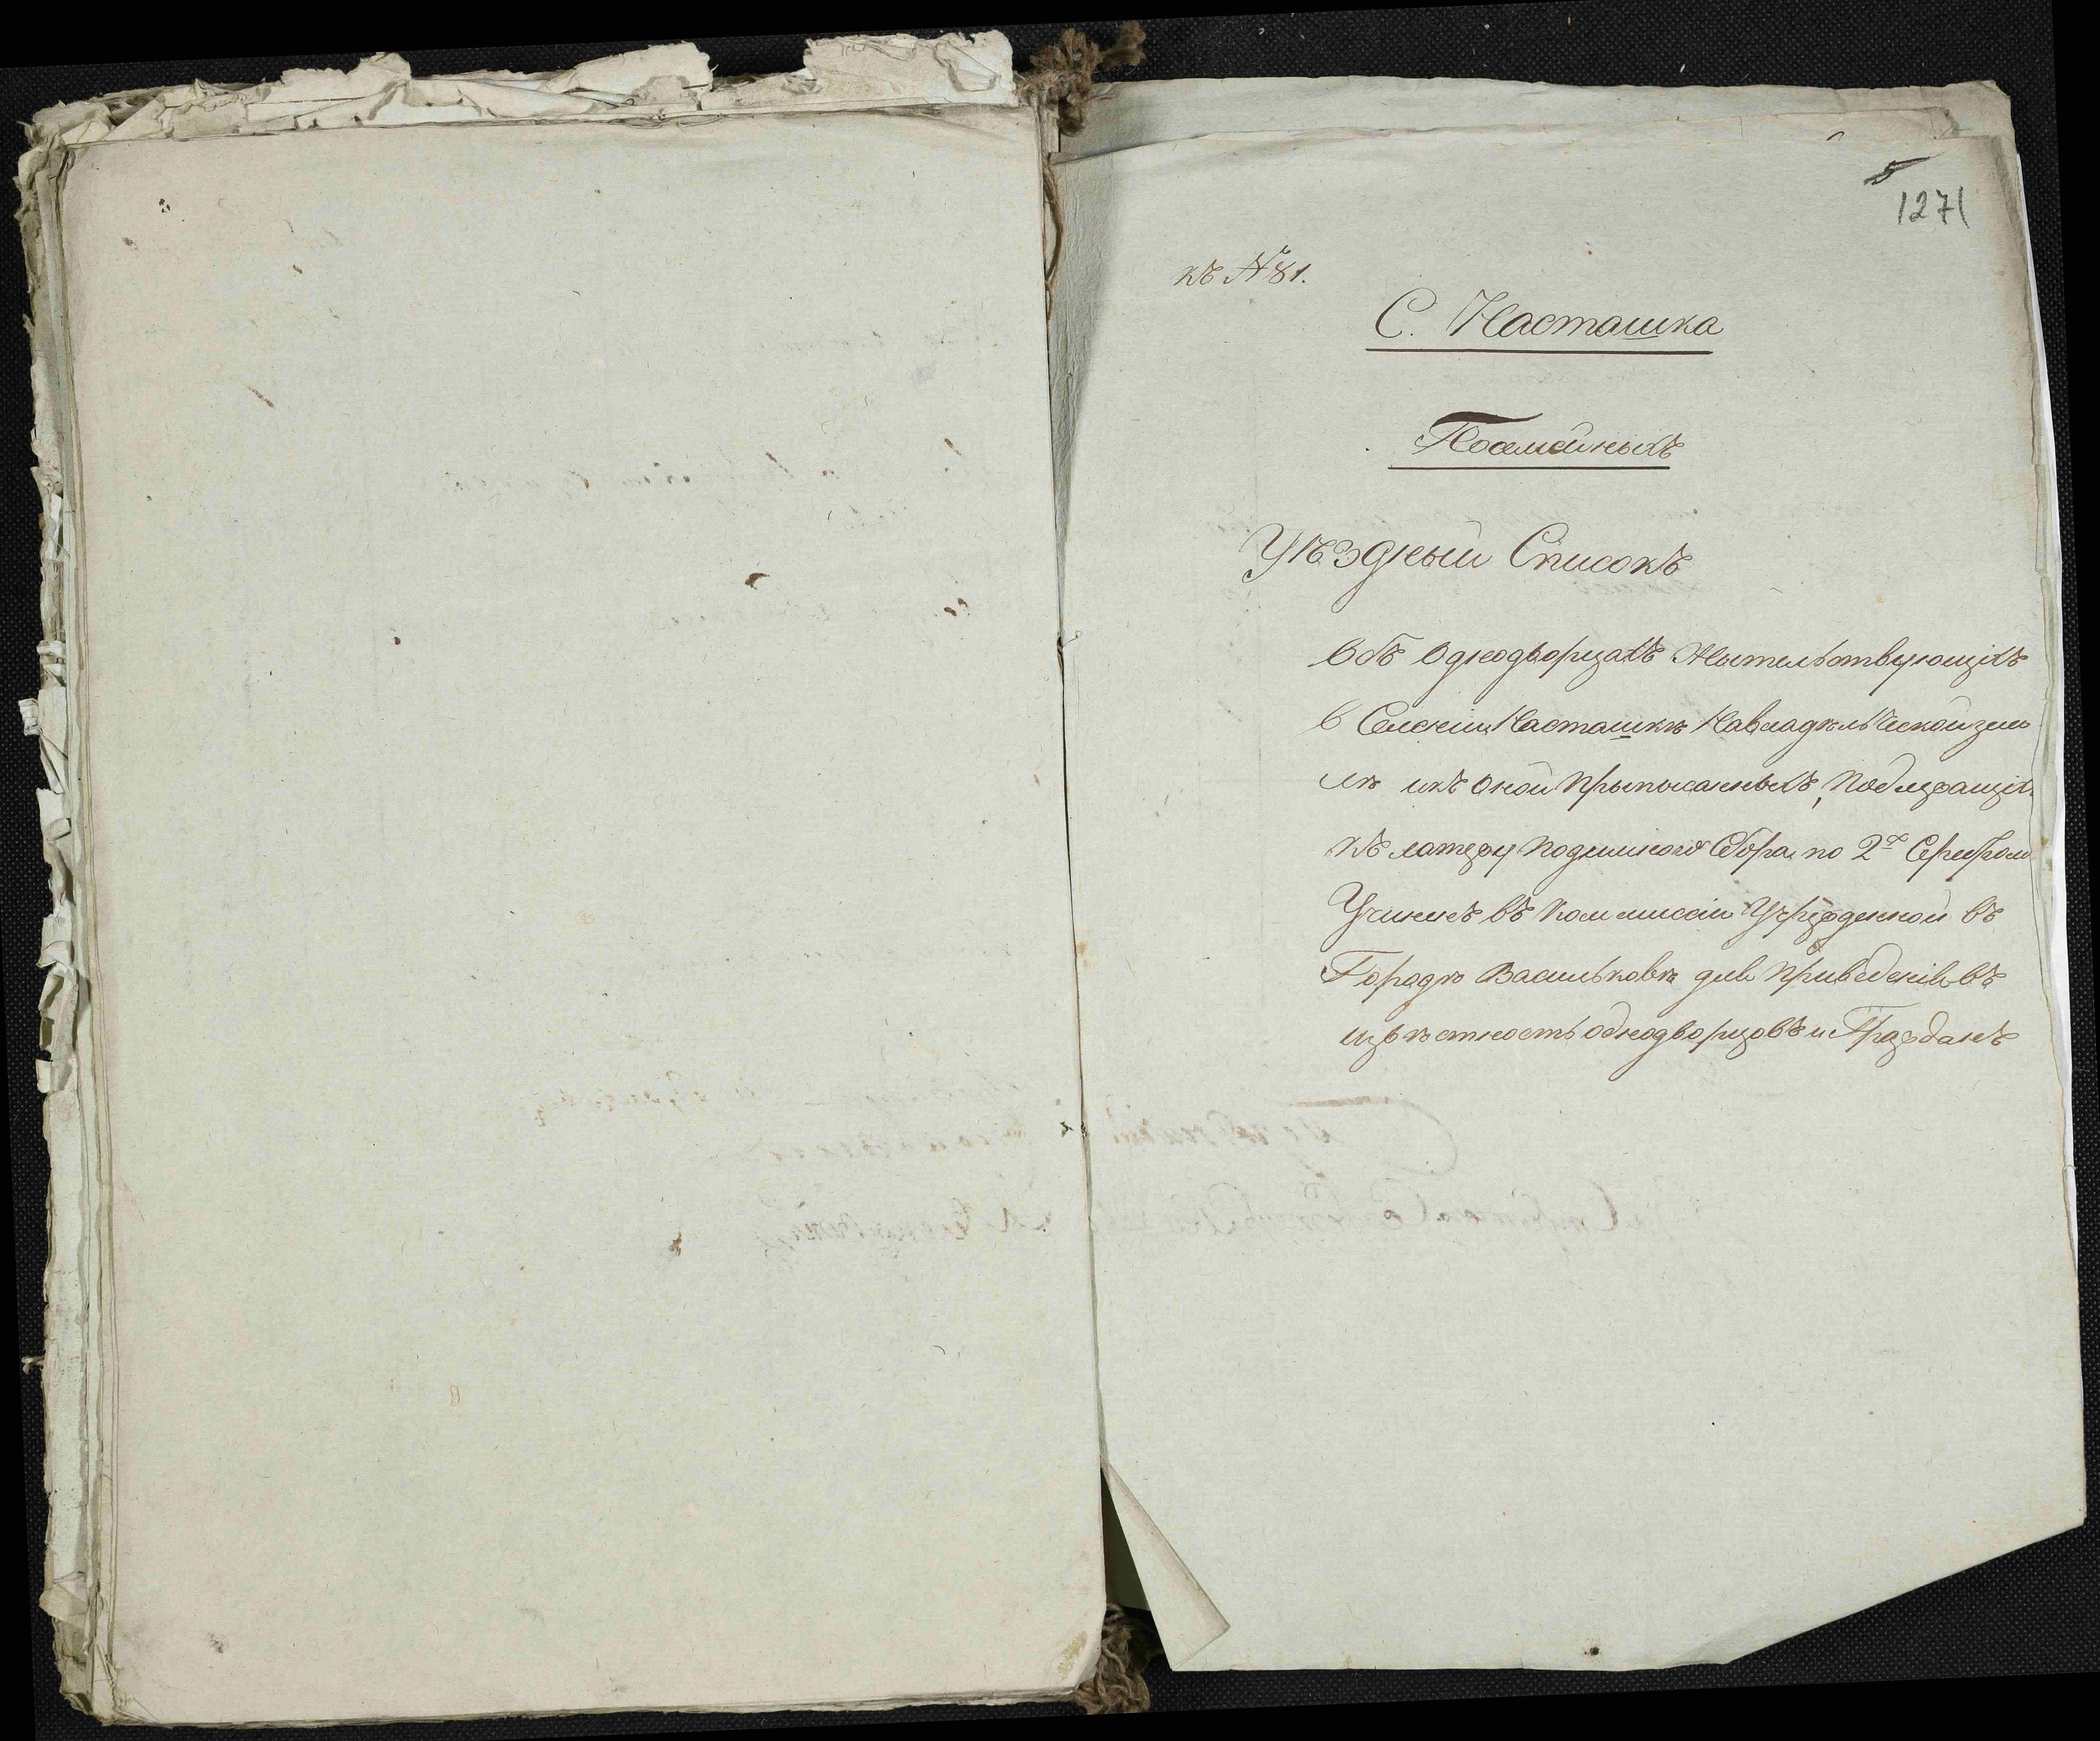 5
1271
къ № 81.
С. Насташка
Посемейныхъ
Уѣздный Списокъ
Объ Однодворцахъ Жытельствующихъ
в Селеніи Насташкѣ Навладѣльческой зем
лѣ икъ оной прыписанныхъ, Подлежащих
къ латежу подымнаго Сбора по 2 Серебром
Учиненъ въ Коммиссіи Учрежденной въ
Городѣ Васильковѣ для приведенія въ
извѣстность однодворцовъ и Граждан​ъ